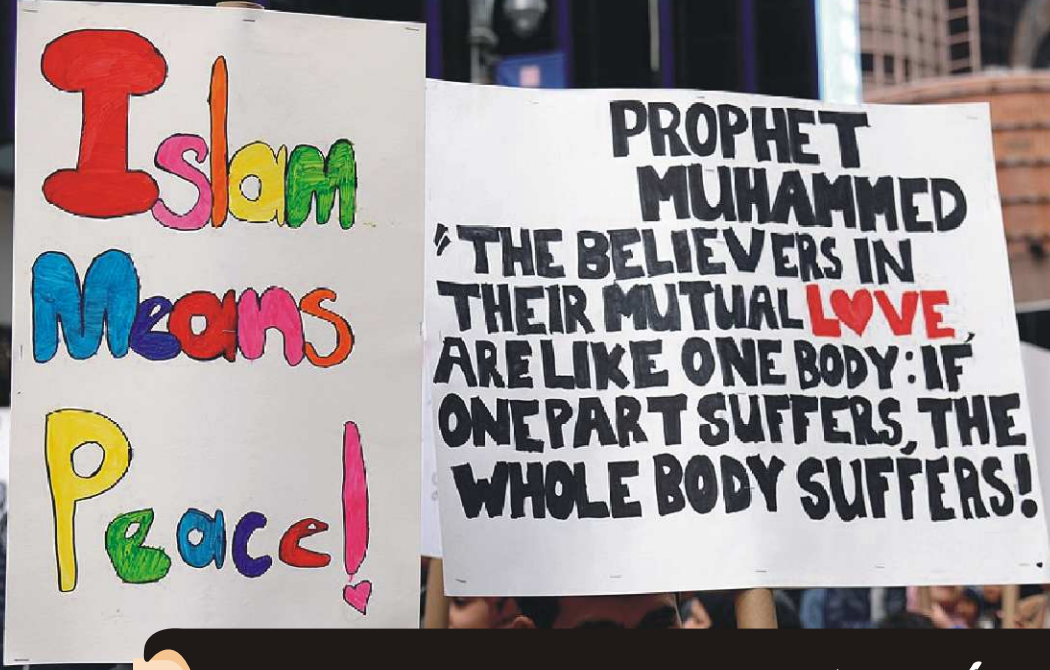 Islam
Means
Peace!
PROPHET
MUHAMMED
"THE BELIEVERS IN
THEIR MUTUAL LOVE,
ARE LIKE ONE BODY: IF
ONE PART SUFFERS, THE
WHOLE BODY SUFFERS!